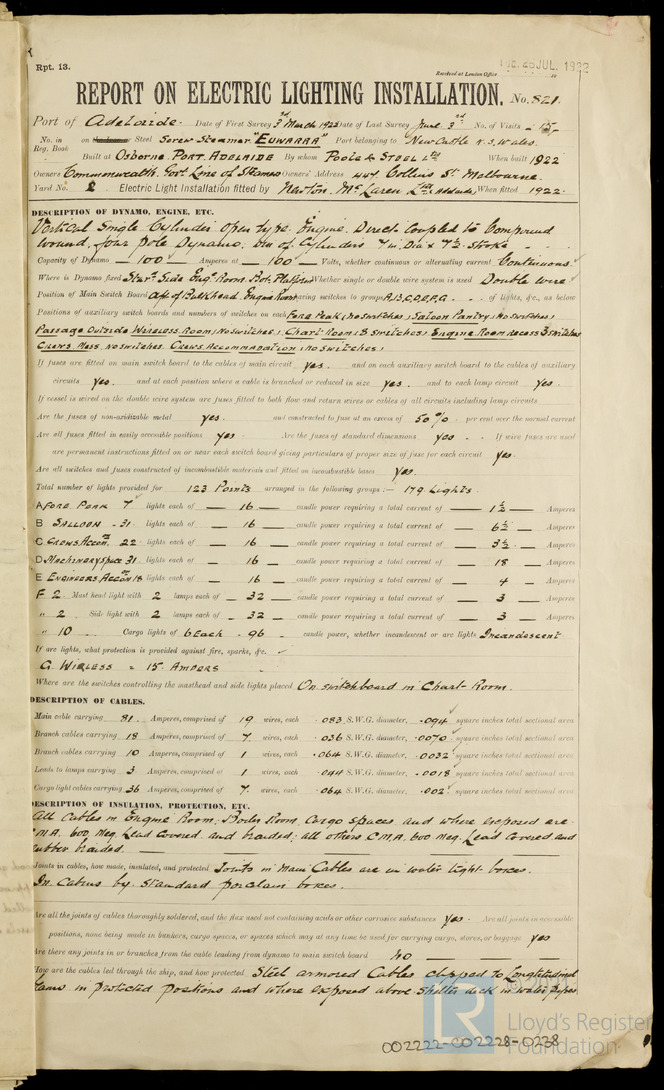 Rpt. 13.
25 JUL. 1922
Received at London Office
REPORT ON ELECTRIC LIGHTING INSTALLATION. No. 821.
Port of Adelaide. Date of First Survey 3rd March 1922 Date of Last Survey June 3rd No. of Visits 15
No. in Reg. Book on the Steel Screw Steamer "EUWARRA" Port belonging to New Castle N.S. Wales.
Built at Osborne Port Adelaide By whom Poole & Steel Ltd When built 1922
Owners Commonwealth Govt Line of Steamers Owners' Address 447 Collins St. Melbourne.
Yard No. 2. Electric Light Installation fitted by Newton, McLaren Ltd (Adelaide) When fitted 1922.
DESCRIPTION OF DYNAMO, ENGINE, ETC.
Vertical Single Cylinder open type Engine Direct Coupled to Compound
wound, four pole Dynamo. Dia of Cylinders 7 in Dia x 7½ stroke
Capacity of Dynamo 100 Amperes at 100 Volts, whether continuous or alternating current Continuous.
Where is Dynamo fixed Star. Side Eng. Room Bot. Platform Whether single or double wire system is used Double wire
Position of Main Switch Board Aft of Bulkhead Engine Room having switches to groups A,B,C,D,E,F,G of lights, &c., as below
Positions of auxiliary switch boards and numbers of switches on each Fore Peak, (No switches, Saloon Pantry, No switches,
Passage outside Wireless Room, No switches, Chart Room, 8 switches, Engine Room recess 3 switches
Crews Mess. No switches. Crews Accommodation, No switches,
If fuses are fitted on main switch board to the cables of main circuit yes. and on each auxiliary switch board to the cables of auxiliary
circuits yes. and at each position where a cable is branched or reduced in size yes. and to each lamp circuit yes.
If vessel is wired on the double wire system are fuses fitted to both flow and return wires or cables of all circuits including lamp circuits
Are the fuses of non-oxidizable metal yes. and constructed to fuse at an excess of 50% per cent over the normal current
Are all fuses fitted in easily accessible positions yes. Are the fuses of standard dimensions yes. If wire fuses are used
are permanent instructions fitted on or near each switch board giving particulars of proper size of fuse for each circuit yes.
Are all switches and fuses constructed of incombustible materials and fitted on incombustible bases yes.
Total number of lights provided for 123 Points arranged in the following groups:— 179 Lights.
A Fore Peak 7 lights each of 16 candle power requiring a total current of 1½ Amperes
B Salloon - 31 lights each of 16 candle power requiring a total current of 6½ Amperes
C Crews Accom. 22 lights each of 16 candle power requiring a total current of 3½ Amperes
D Machinery Space 31 lights each of 16 candle power requiring a total current of 18 Amperes
E Engineers Accom 18 lights each of 16 candle power requiring a total current of 4 Amperes
F 2 Mast head light with 2 lamps each of 32 candle power requiring a total current of 3 Amperes
" 2 Side light with 2 lamps each of 32 candle power requiring a total current of 3 Amperes
" 10 Cargo lights of 6 Each - 96 candle power, whether incandescent or arc lights Incandescent
If arc lights, what protection is provided against fire, sparks, &c.
G. Wirless = 15 Ampers
Where are the switches controlling the masthead and side lights placed On switchboard in Chart-Room.
DESCRIPTION OF CABLES.
Main cable carrying 81 Amperes, comprised of 19 wires, each .083 S.W.G. diameter, .094 square inches total sectional area
Branch cables carrying 18 Amperes, comprised of 7 wires, each .036 S.W.G. diameter, .0070 square inches total sectional area
Branch cables carrying 10 Amperes, comprised of 1 wires, each .064 S.W.G. diameter, .0032 square inches total sectional area
Leads to lamps carrying 3 Amperes, comprised of 1 wires, each .044 S.W.G. diameter, .0018 square inches total sectional area
Cargo light cables carrying 36 Amperes, comprised of 7 wires, each .064 S.W.G. diameter, .002 square inches total sectional area
DESCRIPTION OF INSULATION, PROTECTION, ETC.
All Cables in Engine Room, Boiler Room, Cargo spaces and where exposed are
C.M.A. 600 Meg. Lead Covered and braided; all others C.M.A. 600 Meg. Lead Covered and
rubber braided.
Joints in cables, how made, insulated, and protected Joints in Main Cables are in water tight boxes.
In Cabins by Standard porcelain boxes.
Are all the joints of cables thoroughly soldered, and the flux used not containing acids or other corrosive substances yes. Are all joints in accessible
positions, none being made in bunkers, cargo spaces, or spaces which may at any time be used for carrying cargo, stores, or baggage yes
Are there any joints in or branches from the cable leading from dynamo to main switch board No
How are the cables led through the ship, and how protected Steel armored Cables clipped to Longitudinal
beams in protected positions and where exposed above Shelter deck in water pipes
LR
Lloyd's Register
Foundation
002222-002228-0238